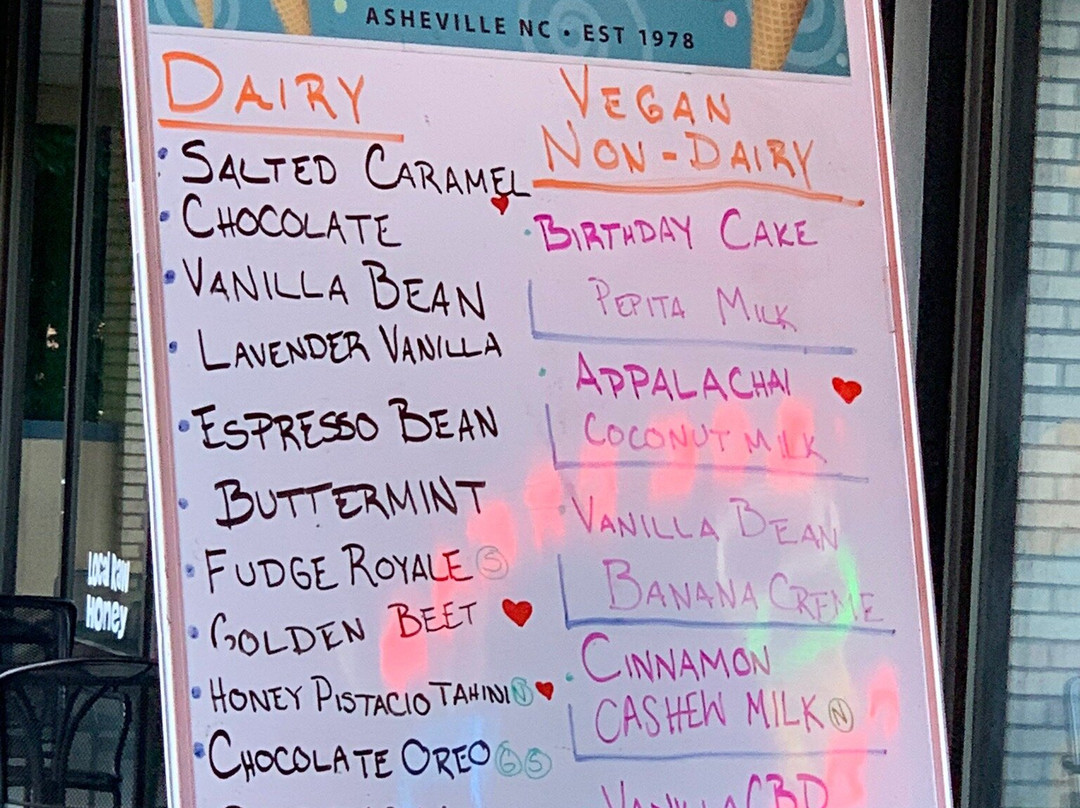 ASHEVILLE NC • EST 1978
DAIRY
• SALTED CARAMEL
• CHOCOLATE
• VANILLA BEAN
• LAVENDER VANILLA
• ESPRESSO BEAN
• BUTTERMINT
• FUDGE ROYALE S
• GOLDEN BEET
• HONEY PISTACIO TAHINI N
• CHOCOLATE OREO G S
VEGAN
NON-DAIRY
• BIRTHDAY CAKE
PEPITA MILK
• APPALACHAI
COCONUT MILK
• VANILLA BEAN
BANANA CREME
• CINNAMON
CASHEW MILK N
VANILLA CBD
Local Raw
Honey